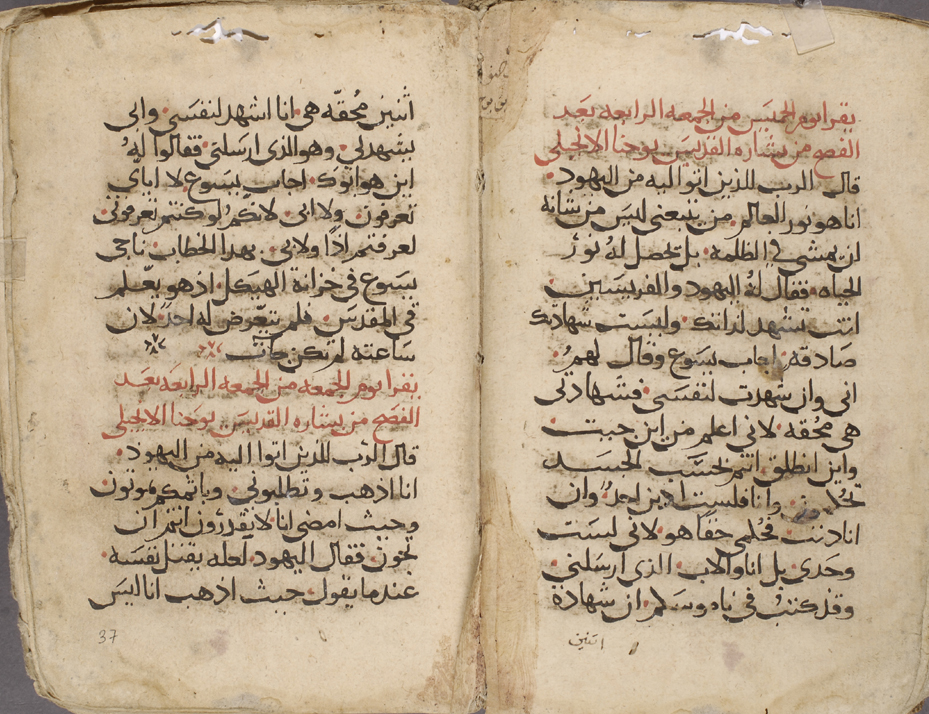 يقرا يوم الخميس من الجمعه الرابعه بعد
الفصح من بشاره القديس يوحنا الانجلي
قال الرب للذين اتوا اليه من اليهود
انا هو نور العالم من يتبعني ليس من شانه
ان يمشي في الظلمه بل تحصل له نور
الحياه فقال له اليهود والفريسين
انت تشهد لذاتك وليست شهادتك
صادقه اجاب يسوع وقال لهم
اني وان شهدت لنفسي فشهادتي
هي محقه لاني اعلم من اين جيت
واين انطلق انتم بحسب الجسد
تحكمون وانا فلست ادين احد وان
انا دنت فحكمي حقا هو لاني ليست
وحدي بل انا والاب الذي ارسلني
وقد كتب في ناموسكم ان شهادة
اثنين
أثنين محقه هي انا اشهد لنفسي وابي
يشهد لي وهو الذي ارسلني فقالوا له
اين هو ابوك اجاب يسوع لا اياي
تعرفون ولا ابي لانكم لو كنتم تعرفوني
لعرفتم اذا ولابي بهدا الخطاب ناجى
يسوع في خزانة الهيكل اذ هو يعلم
في المقدس فلم يتعرض له احد لان
ساعته لم تكن جات
يقرا يوم الجمعه من الجمعه الرابعه بعد
الفصح من بشاره القديس يوحنا الانجلي
قال الرب للذين اتوا اليه من اليهود
انا اذهب وتطلبوني وباتمكم تموتون
وحيث امضي انا لا يقدرون انتم ان
تجون فقال اليهود لعله يقتل نفسه
عندما يقول حيث اذهب انا ليس
37